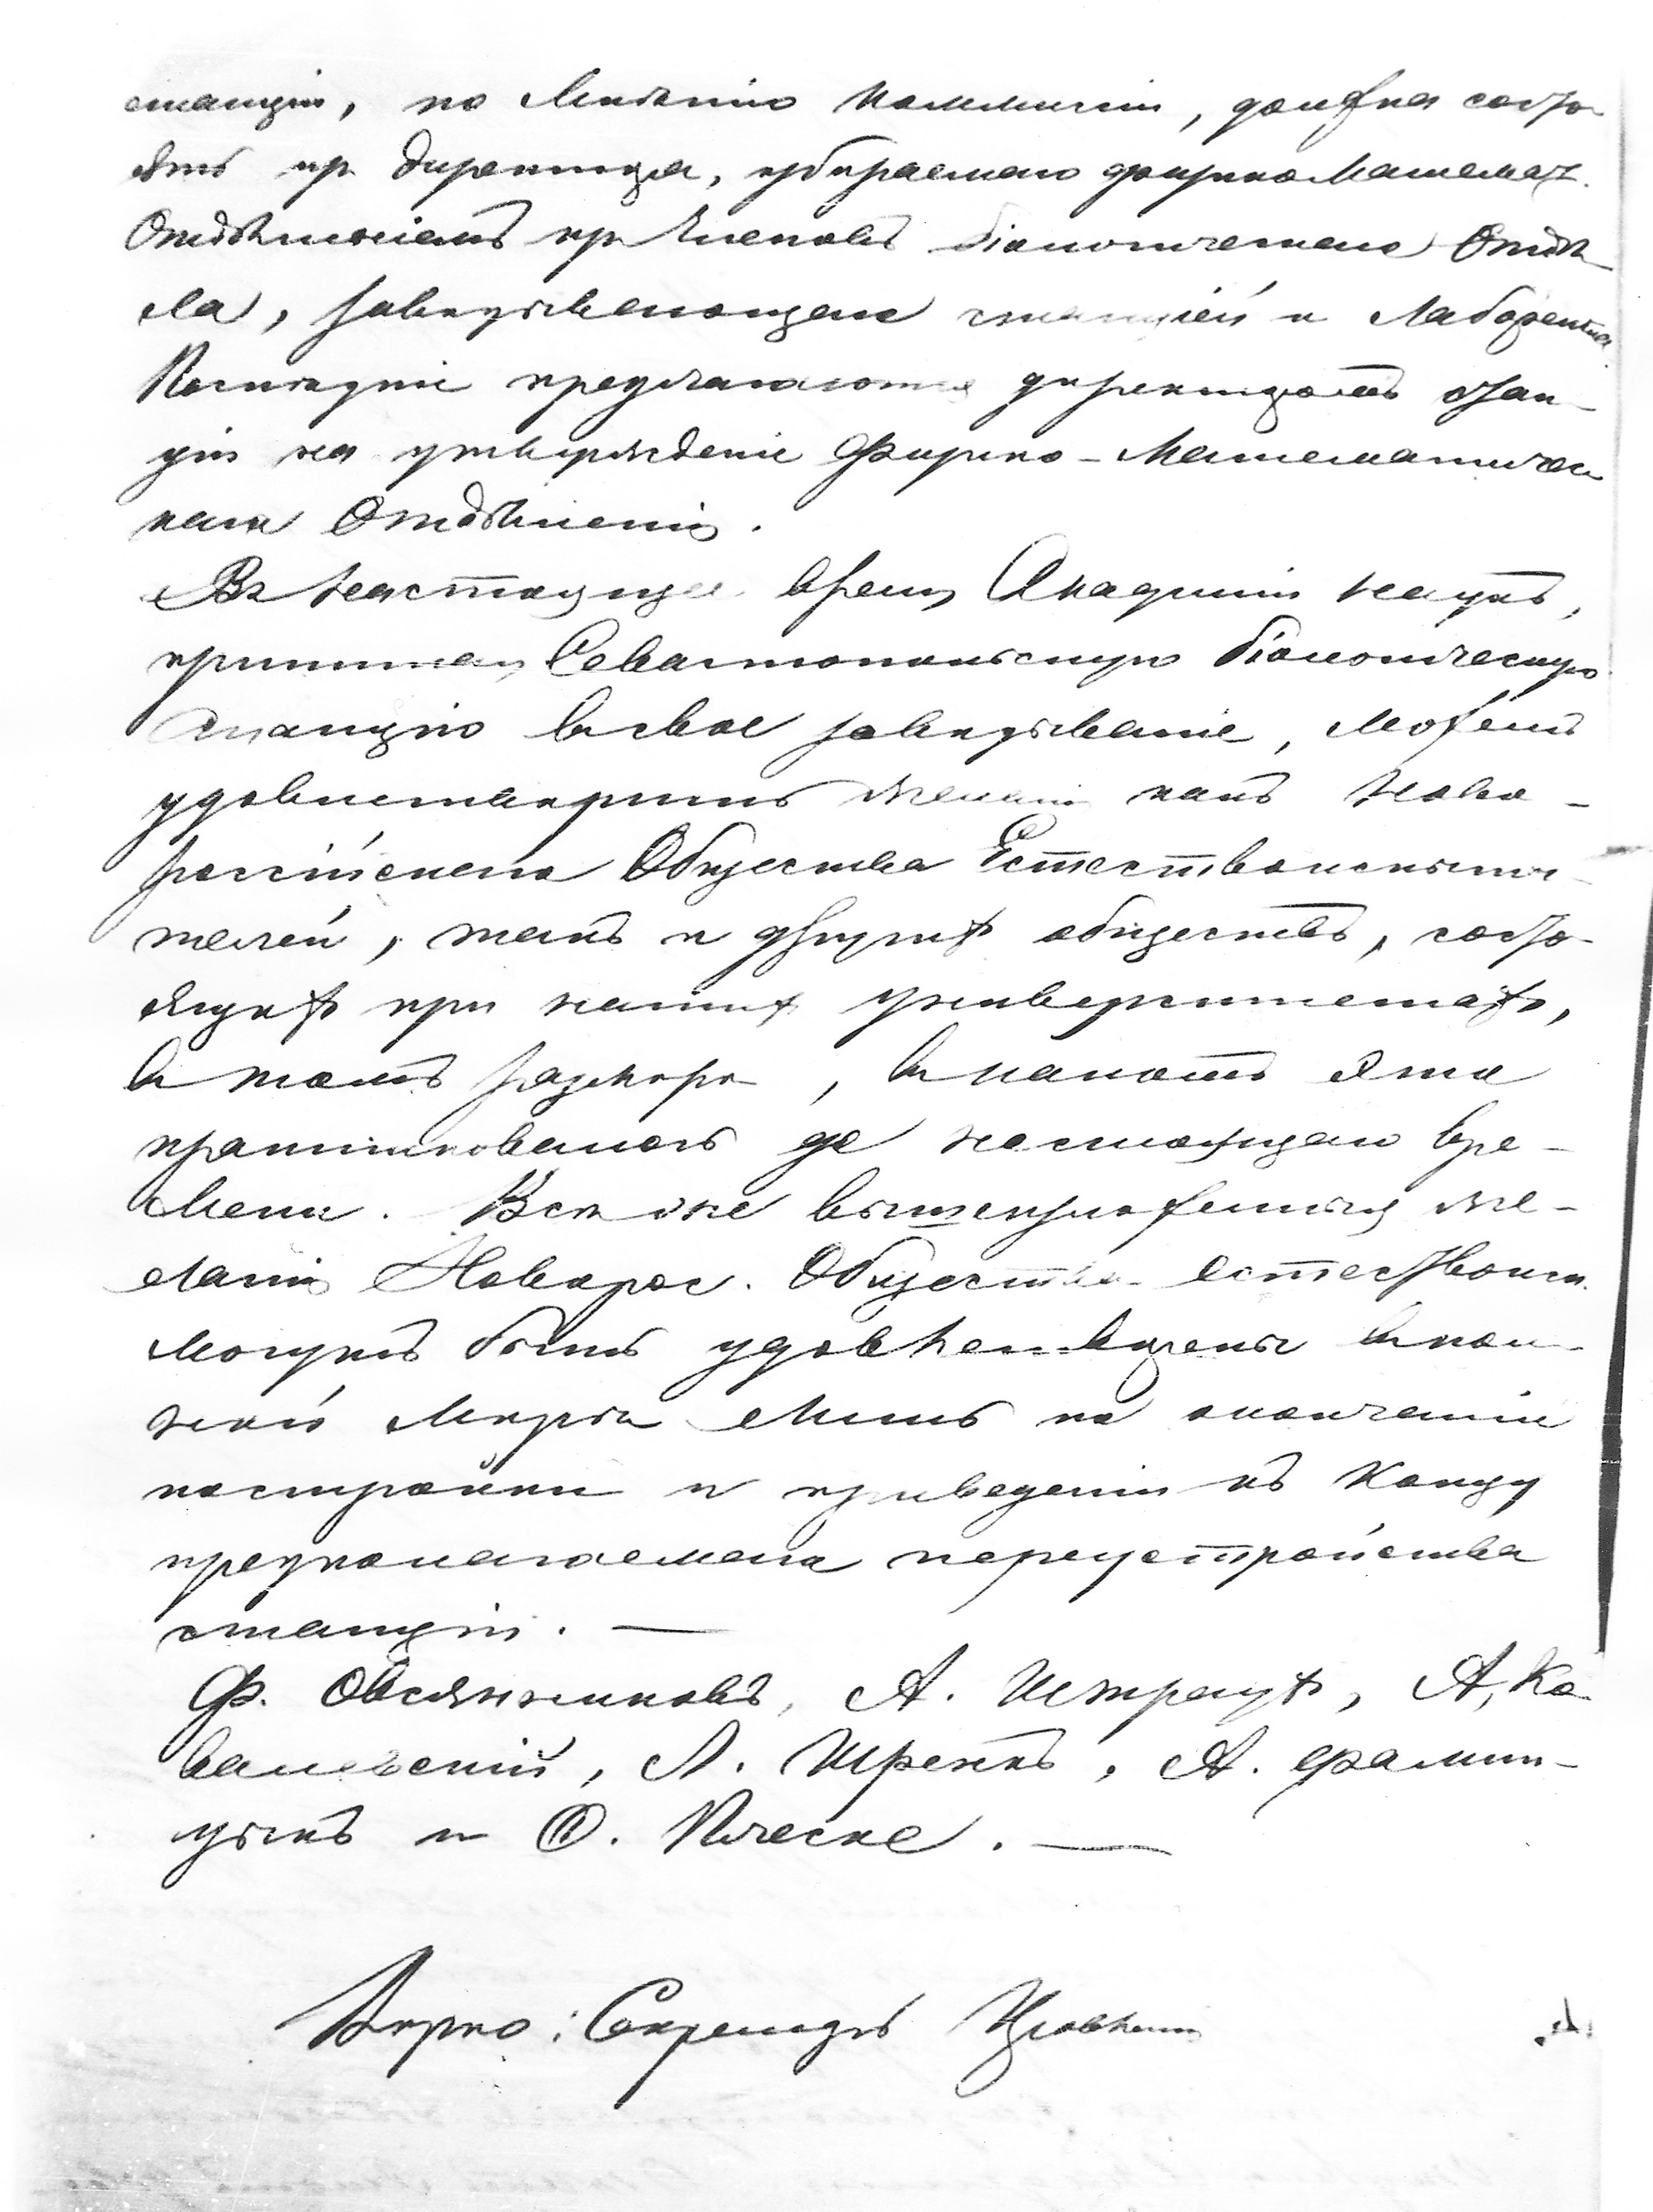 станціи, по мнѣнію коммисіи, должна состо-
ять изъ директора, избираемаго физикоматемат.
Отдѣленіемъ изъ членовъ біологическаго Отдѣ-
ла, завѣдывающаго станціей и лаборанта
Послѣдніе представляются директоромъ стан-
ціи на утвержденіе Физико-Математичес-
каго Отдѣленія.
Въ настоящее время Академія наукъ,
принимая Севастопольскую біологическую
станцію въ свое завѣдываніе, можетъ
удовлетворить желанія какъ Ново-
россійскаго Общества Естествоиспыта-
телей, такъ и другихъ обществъ, состо-
ящихъ при нашихъ университетахъ,
въ томъ размѣрѣ, въ какомъ это
практиковалось до настоящаго вре-
мени. Всѣ же вышеизложенныя же-
ланія Новорос. Общества естествоисп.
могутъ быть удовлетворены въ пол-
ной мѣрѣ лишь по окончаніи
постройки и приведеніи къ концу
предполагаемаго переустройства
станціи. —
Ф. Овсянниковъ, А. Штраухъ, А. Ко-
валевскій, Л. Шренкъ, А. Фамин-
цынъ и Ѳ. Плеске. —
Вѣрно: Секретарь